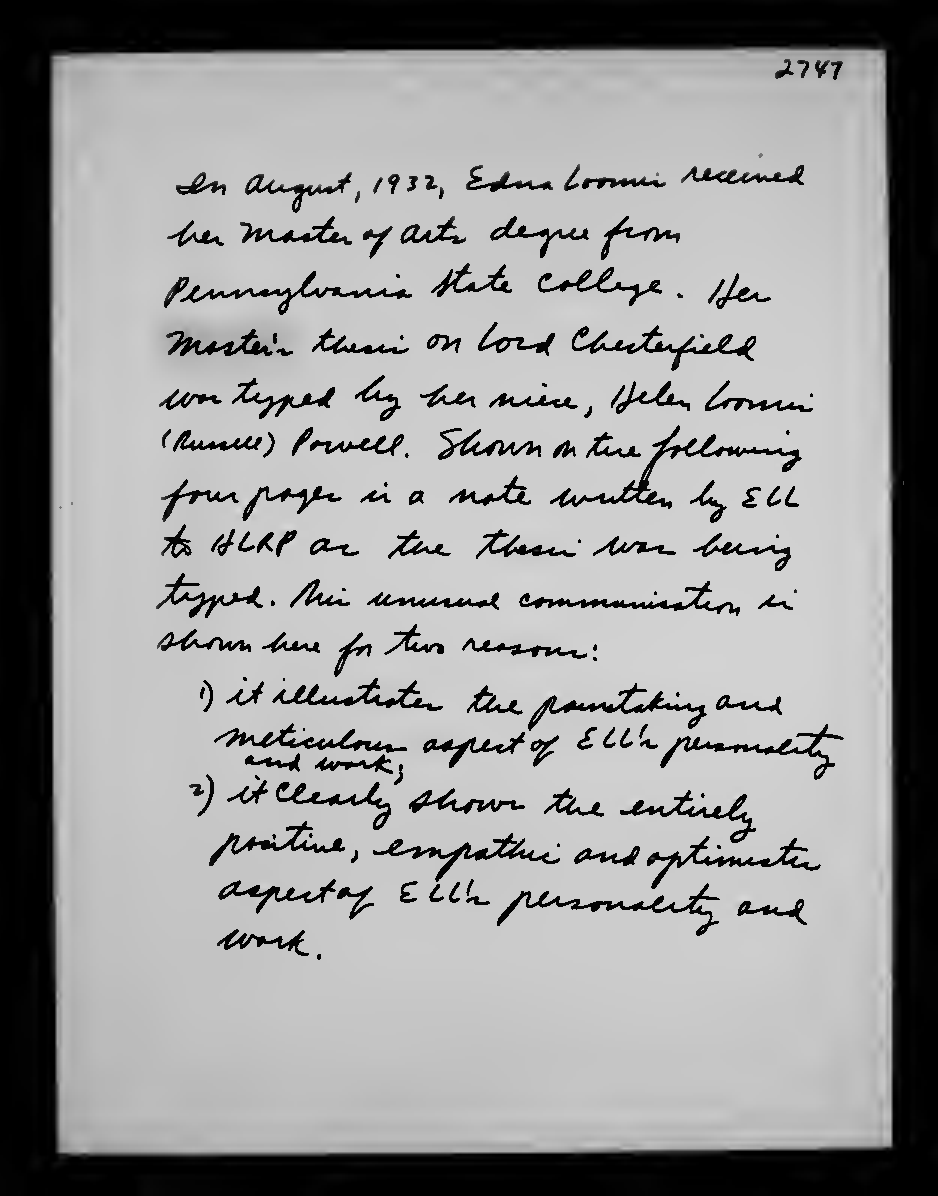 2747
In August, 1932, Edna Loomis received
her Master of Arts degree from
Pennsylvania State College. Her
Master's thesis on Lord Chesterfield
was typed by her niece, Helen Loomis
(Russell) Powell. Shown on the following
four pages is a note written by ELL
to HLRP as the thesis was being
typed. This unusual communication is
shown here for two reasons:
1) it illustrates the painstaking and
meticulous aspect of ELL's personality
and work;
2) it clearly shows the entirely
positive, empathic and optimistic
aspect of ELL's personality and
work.